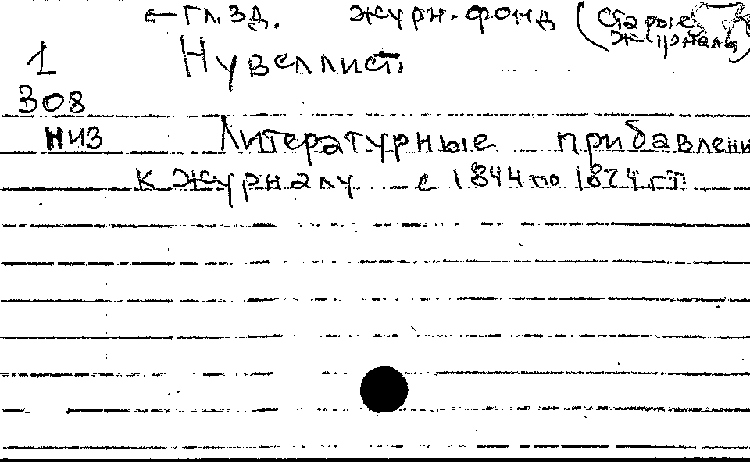 ← гл. зд. журн. фонд (старые журналы)
1 Нувеллист
308
низ Литературные прибавлени
к журналу с 1844 по 1874 гг.